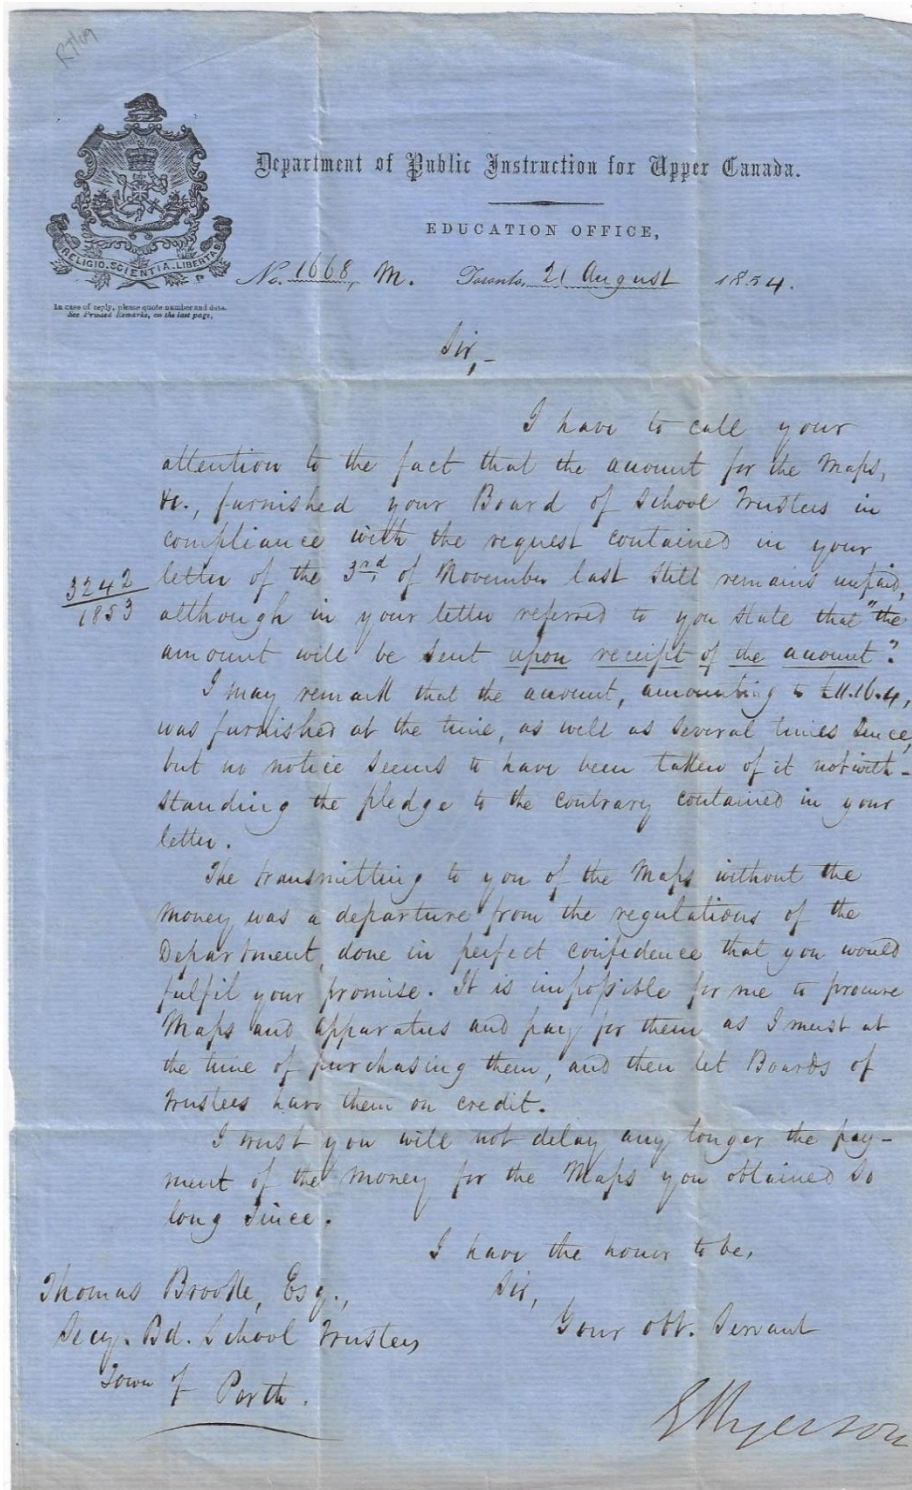 Department of Public Instruction for Upper Canada.
EDUCATION OFFICE,
RELIGIO. SCIENTIA. LIBERTAS
No. 1668, M. Toronto, 21 August 1854.
In case of reply, please quote number and date.
See Printed Remarks, on the last page.
Sir,-
I have to call your
attention to the fact that the account for the Maps,
&c., furnished your Board of School Trustees in
compliance with the request contained in your
3242
1853
letter of the 3rd of November last still remains unpaid,
although in your letter referred to you state that "the
amount will be sent upon receipt of the account".
I may remark that the account, amounting to £11.16.4,
was furnished at the time, as well as several times since,
but no notice seems to have been taken of it notwith-
standing the pledge to the contrary contained in your
letter.
The transmitting to you of the Maps without the
money was a departure from the regulations of the
Department, done in perfect confidence that you would
fulfil your promise. It is impossible for me to procure
Maps and apparatus and pay for them as I must at
the time of purchasing them, and then let Boards of
Trustees have them on credit.
I trust you will not delay any longer the pay-
ment of the money for the Maps you obtained so
long since.
I have the honor to be,
Sir,
Your obt. Servant
Thomas Brooke, Esq.,
Secy. Bd. School Trustees
Town of Perth.
E Ryerson